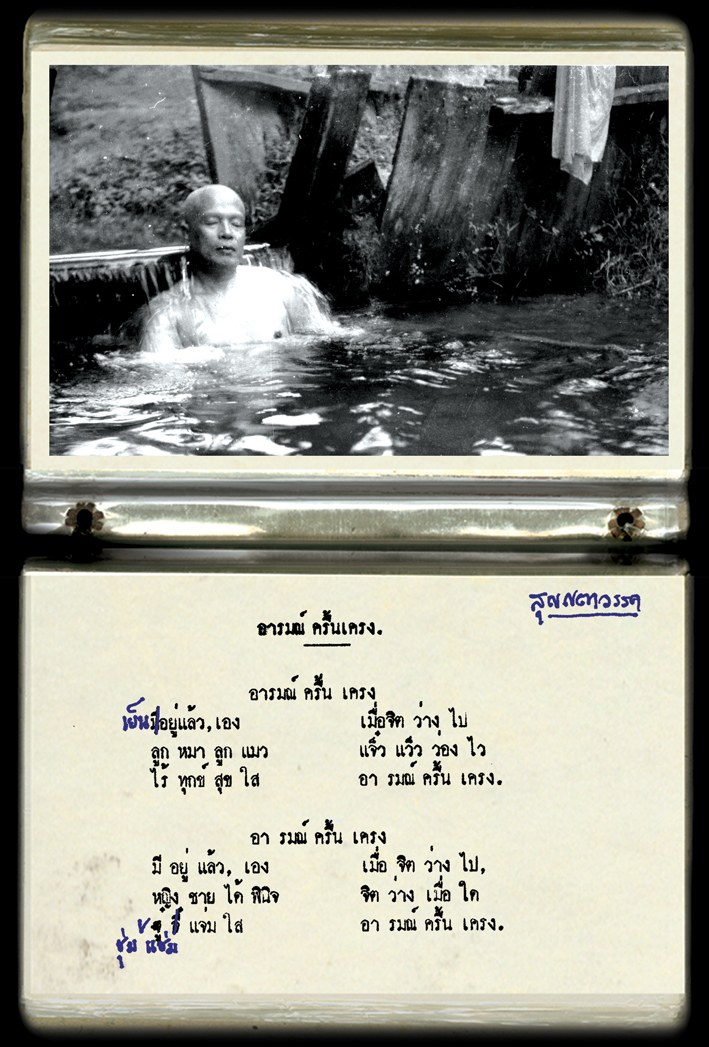 สุญญตาวรรค
อารมณ์ ครื้นเครง.
อารมณ์ ครื้น เครง
เย็น มีอยู่แล้ว,เอง เมื่อจิต ว่าง ไป
ลูก หมา ลูก แมว แจ๋ว แว๊ว ว่อง ไว
ไร้ ทุกข์ สุข ใส อา รมณ์ ครื้น เครง.
อา รมณ์ ครื้น เครง
มี อยู่ แล้ว, เอง เมื่อ จิต ว่าง ไป,
หญิง ชาย ได้ พินิจ จิต ว่าง เมื่อ ใด
แจ่ม ใส อา รมณ์ ครื้น เครง.
ชุ่ม แช่ม